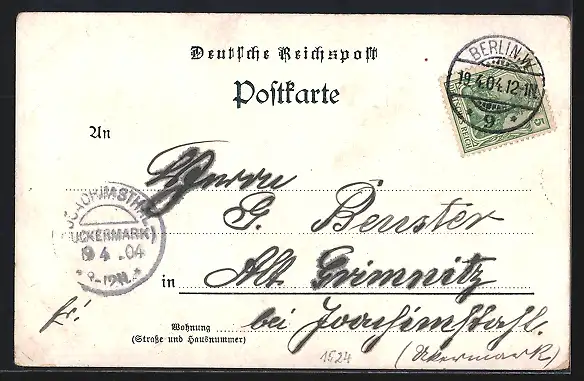 Deutsche Reichspost
Postkarte
BERLIN.W.
19.4.04.12-1N.
* 9 *
DEUTSCHES REICH
5
An
Herrn
G. Benster
in Alt Grimnitz
bei Joachimstahl.
(Ukermark)
Wohnung
(Straße und Hausnummer)
fr!
JOACHIMSTHAL
(UCKERMARK)
19 4 .04
1524